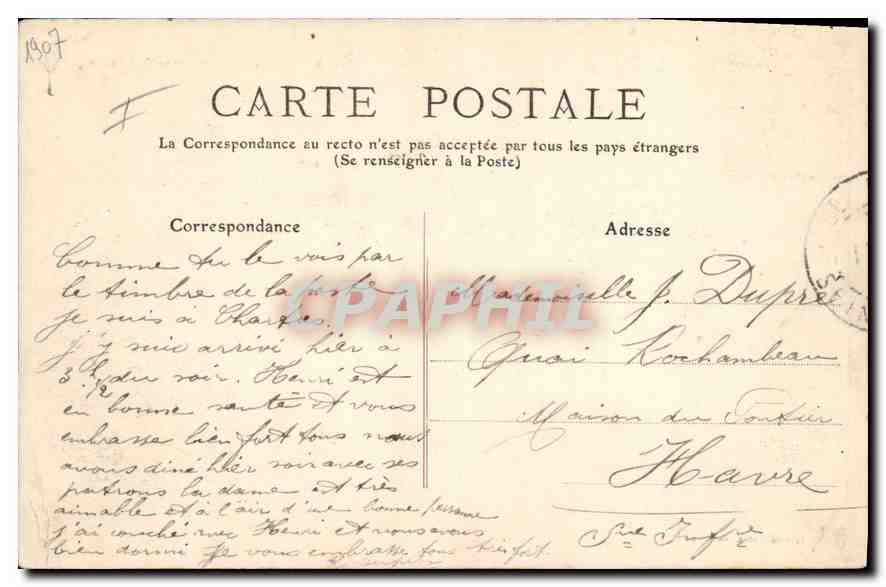 1907
CARTE POSTALE
La Correspondance au recto n'est pas acceptée par tous les pays étrangers
(Se renseigner à la Poste)
Correspondance
Comme tu le vois par
le timbre de la poste
je suis à Chartres.
j'y suis arrivé hier à
3 h 1/2 du soir. Henri est
en bonne santé et vous
embrasse bien fort tous nous
avons diné hier soir avec ses
patrons la dame est très
aimable et à l'air d'une bonne personne
j'ai couché avec Henri et nous avons
bien dormi Je vous embrasse tous très fort.
Adresse
Mademoiselle J. Dupré
Quai Rochambeau
Maison du
Havre
Sne Infre
CPAPHIL